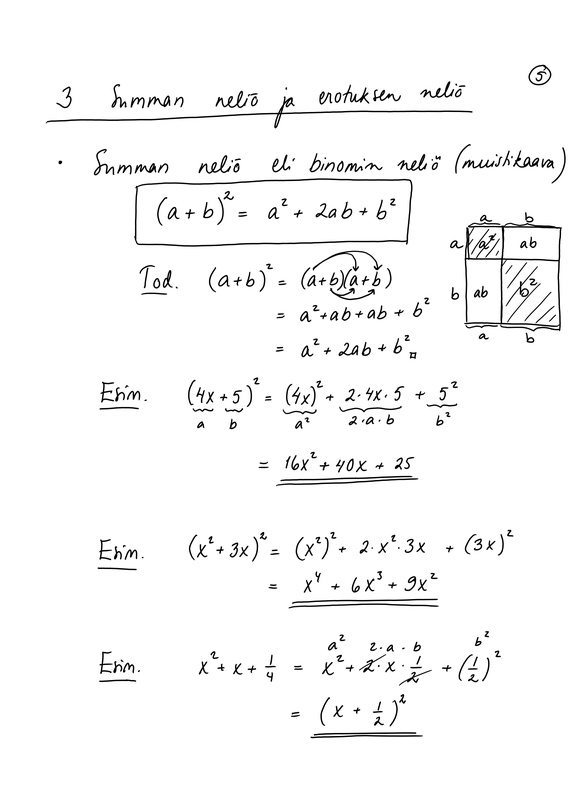 5
3 Summan neliö ja erotuksen neliö
• Summan neliö eli binomin neliö (muistikaava)
(a + b)² = a² + 2ab + b²
a b
a a² ab
b ab b²
a b
Tod. (a+b)² = (a+b)(a+b)
= a²+ab+ab + b²
= a² + 2ab + b² □
Esim. (4x + 5)² = (4x)² + 2·4x·5 + 5²
a b a² 2·a·b b²
= 16x² + 40x + 25
Esim. (x² + 3x)² = (x²)² + 2·x²·3x + (3x)²
= x⁴ + 6x³ + 9x²
a² 2·a·b b²
Esim. x² + x + 1/4 = x² + 2·x·1/2 + (1/2)²
= (x + 1/2)²